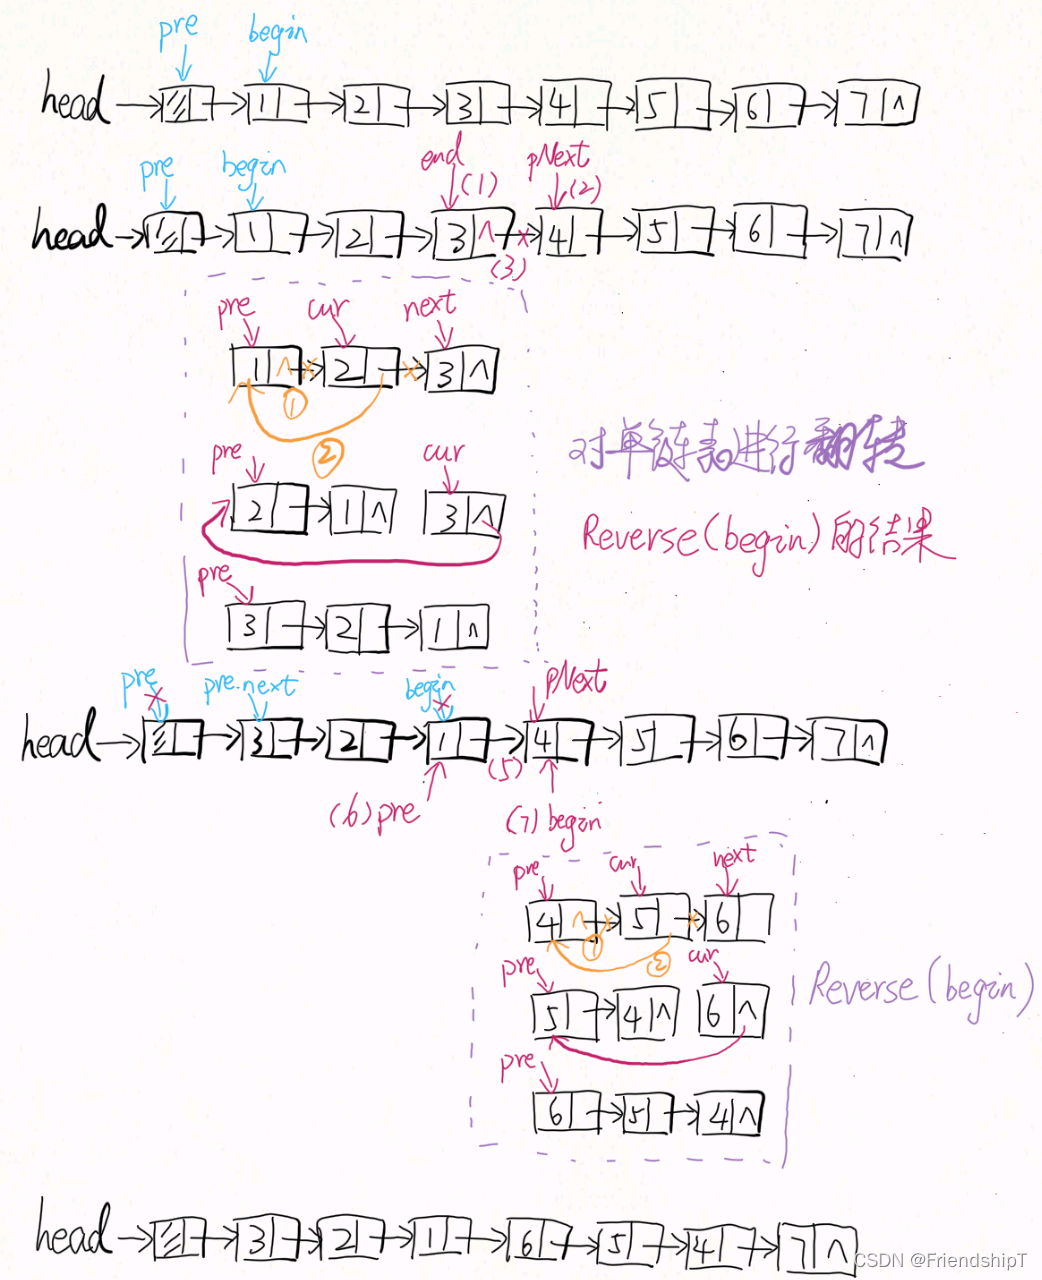 pre begin
head 1 2 3 4 5 6 7 ^
pre begin end (1) pNext (2)
head 1 2 3 ^ × 4 5 6 7 ^
(3)
pre cur next
1 ^ × 2 × 3 ^
①
②
pre cur
2 1 ^ 3 ^
pre
3 2 1 ^
对单链表进行翻转
Reverse(begin)的结果
pre × pre.next begin × pNext
head 3 2 1 4 5 6 7 ^
(5)
(6)pre (7)begin
pre cur next
4 ^ × 5 × 6
① ②
pre cur
5 4 ^ 6 ^
pre
6 5 4 ^
Reverse(begin)
head 3 2 1 6 5 4 7 ^
CSDN @FriendshipT